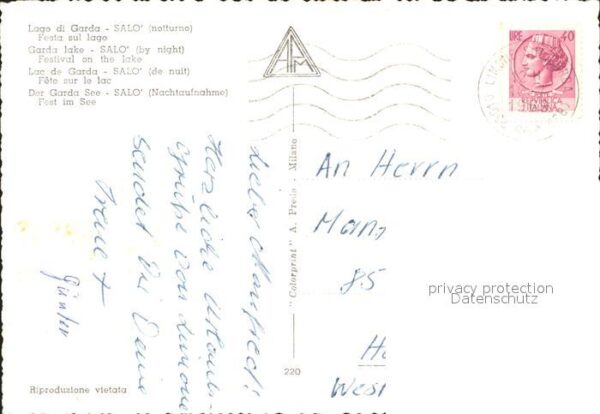 Lago di Garda - SALO' (notturno)
Festa sul lago
Garda lake - SALO' (by night)
Festival on the lake
Lac de Garda - SALO' (de nuit)
Fête sur le lac
Der Garda See - SALO' (Nachtaufnahme)
Fest im See
APM
LIRE 40
Lieber Manfred!
Herzliche Urlaubs-
grüße von Limone
sendet Dir Deine
Traue +
Günter
"Colorprint" A. Preda - Milano
220
An Herrn
Man
85
West
privacy protection
Datenschutz
Riproduzione vietata